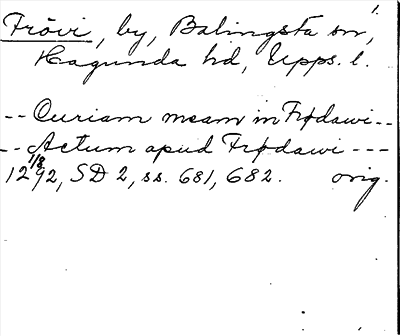 1.
Frövi, by, Balingsta sn,
Hagunda hd, Upps. l.
-- Curiam meam in Frødawi --
-- Actum apud Frødawi ---
1/8
1292, SD 2, ss. 681, 682. orig.